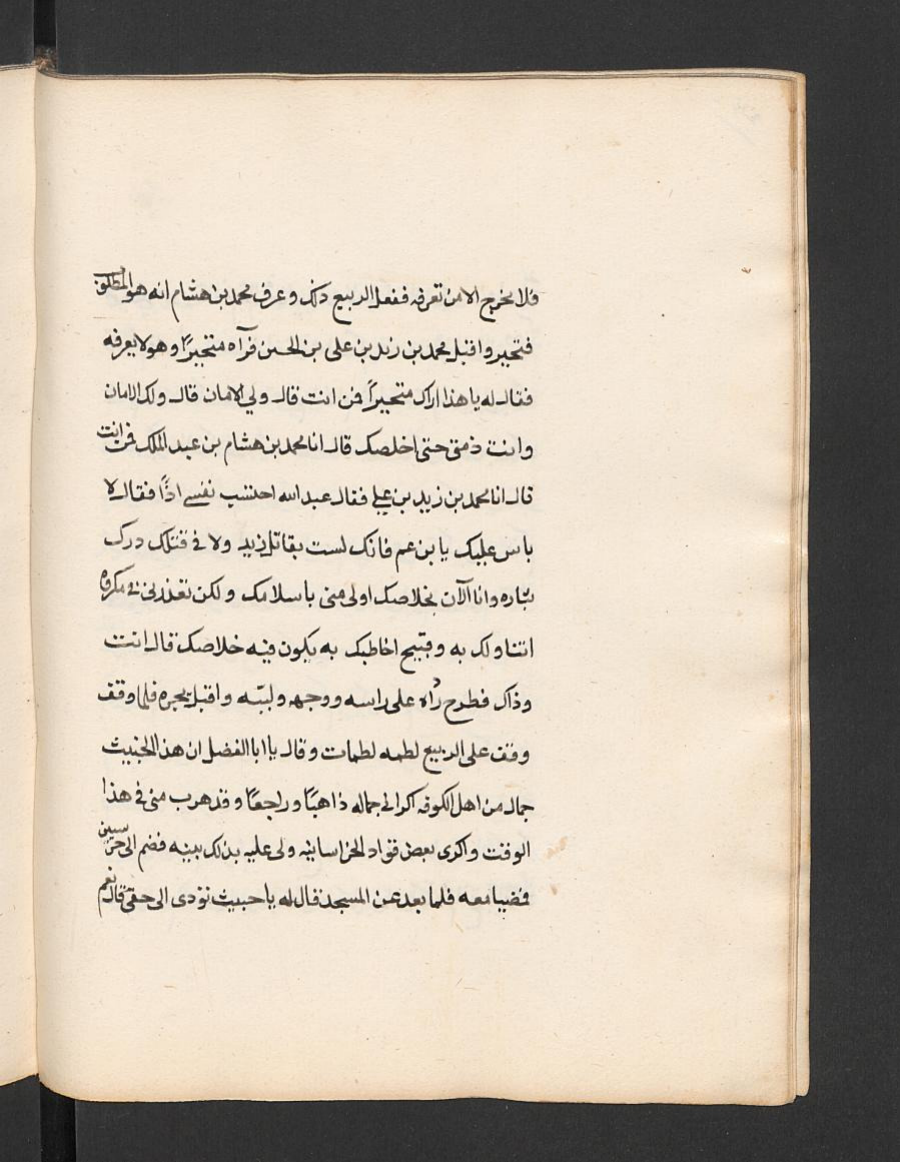 فلا يخرج الا من تعرفه ففعل الربيع ذلك وعرف محمد بن هشام انه هو المطلوب
فتحير واقبل محمد بن زيد بن على بن الحسن فرآه متحيرًا وهو لا يعرفه
فقال له يا هذا اراك متحيرًا فمن انت قال ولي الامان قال ولك الامان
وانت ذمتى حتى اخلصك قال انا محمد بن هشام بن عبد الملك فمن انت
قال انا محمد بن زيد بن على فقال عبد الله احتسب نفسى اذًا فقال لا
باس عليك يا بن عم فانك لست بقاتل زيد ولا فى قتلك درك
بثاره وانا الآن بخلاصك اولى منى باسلامك ولكن تعذرنى فى مكروه
اتناولك به وقبيح اخاطبك به يكون فيه خلاصك قال انت
وذاك فطرح رداه على راسه ووجهه ولببه واقبل يجره فلما وقف
وقف على الربيع لطمه لطمات وقال يا ابا الفضل ان هذا الخبيث
جمال من اهل الكوفه اكرانى جماله ذاهبًا وراجعًا وقد هرب منى فى هذا
الوقت واكرى بعض قواد الخراسانيه ولى عليه بذلك بينه فضم الى حرسيين
فمضيا معه فلما بعد عن المسجد قال له يا خبيث تؤدى الى حقى قال نعم